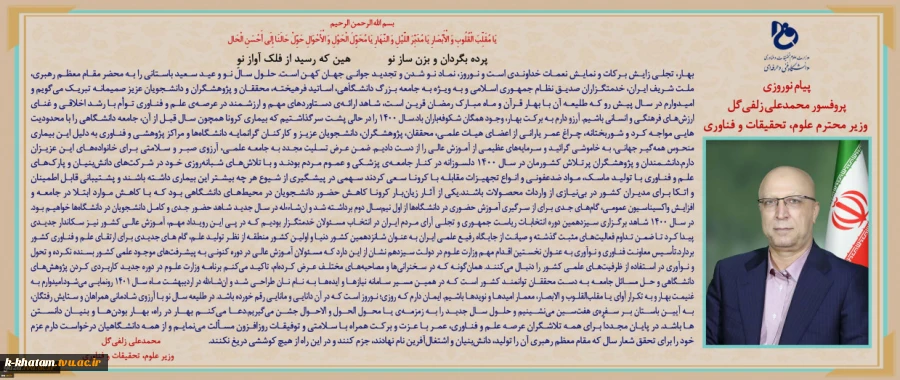 بسم الله الرحمن الرحیم
یَا مُقَلِّبَ الْقُلُوبِ وَ الْأَبْصَارِ یَا مُدَبِّرَ اللَّیْلِ وَ النَّهَارِ یَا مُحَوِّلَ الْحَوْلِ وَ الْأَحْوَالِ حَوِّلْ حَالَنَا إِلَی أَحْسَنِ الْحَالِ
پرده بگردان و بزن ساز نو هین که رسید از فلک آواز نو
پیام نوروزی
پروفسور محمدعلی زلفی گل
وزیر محترم علوم، تحقیقات و فناوری
بهار، تجلی زایش برکات و نمایش نعمات خداوندی است و نوروز، نماد نو شدن و تجدید جوانی جهان کهن است. حلول سال نو و عید سعید باستانی را به محضر مقام معظم رهبری،
ملت شریف ایران، خدمتگزاران صدیق نظام جمهوری اسلامی و به ویژه به جامعه بزرگ دانشگاهی، اساتید فرهیخته، محققان و پژوهشگران و دانشجویان عزیز صمیمانه تبریک می‌گویم و
امیدوارم در سال پیش رو که طلیعه آن با بهار قرآن و ماه مبارک رمضان قرین است، شاهد ارائه‌ی دستاوردهای مهم و ارزشمند در عرصه‌ی علم و فناوری توأم با رشد اخلاقی و غنای
ارزش‌های فرهنگی و انسانی باشیم. آرزو دارم به برکت بهار، وجود همگان شکوفه‌باران باد. سال ۱۴۰۰ را در حالی پشت سر گذاشتیم که بیماری کرونا همچون سال قبل از آن، جامعه دانشگاهی را با محدودیت
هایی مواجه کرد و شوربختانه، چراغ عمر یارانی از اعضای هیات علمی، محققان، پژوهشگران، دانشجویان عزیز و کارکنان گرانمایه دانشگاه‌ها و مراکز پژوهشی و فناوری به دلیل این بیماری
منحوس همه‌گیر جهانی، به خاموشی گرائید و سرمایه‌های عظیمی از آموزش عالی را از دست دادیم. ضمن عرض تسلیت مجدد به جامعه علمی، آرزوی صبر و سلامتی برای خانواده‌های این عزیزان
دارم. دانشمندان و پژوهشگران پرتلاش کشورمان در سال ۱۴۰۰ دلسوزانه در کنار جامعه‌ی پزشکی و عموم مردم بودند و با تلاش‌های شبانه‌روزی خود در شرکت‌های دانش‌بنیان و پارک‌های
علم و فناوری با تولید ماسک، مواد ضدعفونی و انواع تجهیزات مقابله با کرونا سعی کردند سهمی در پیشگیری از شیوع هر چه بیشتر این بیماری داشته باشند و پشتیبانی قابل اطمینان
و اتکا برای مدیران کشور در بی‌نیازی از واردات محصولات باشند. یکی از آثار زیان‌بار کرونا کاهش حضور دانشجویان در محیط‌های دانشگاهی بود که با کاهش موارد ابتلا در جامعه و
افزایش واکسیناسیون عمومی، گام‌های جدی برای از سرگیری آموزش حضوری در دانشگاه‌ها از اول نیم‌سال دوم برداشته شد و ان‌شاءالله در سال جدید شاهد حضور جدی و کامل دانشجویان در دانشگاه‌ها خواهیم بود.
در سال ۱۴۰۰ شاهد برگزاری سیزدهمین دوره انتخابات ریاست جمهوری و تجلی آرای مردم ایران در انتخاب مسئولان خدمتگزار بودیم که در پی این رویداد مهم، آموزش عالی کشور نیز سکاندار جدیدی
پیدا کرد تا ضمن تداوم فعالیت‌های مثبت گذشته و صیانت از جایگاه رفیع علمی ایران به عنوان شانزدهمین کشور دنیا و اولین کشور منطقه از نظر تولید علم، گام های جدیدی برای ارتقای علم و فناوری کشور
بردارد. تأسیس معاونت فناوری و نوآوری به عنوان نخستین اقدام مهم وزارت علوم در دولت سیزدهم نشان از این دارد که مسئولان آموزش عالی در دوره کنونی به پیشرفت‌های موجود علمی کشور بسنده نکرده و تحول
و نوآوری در استفاده از ظرفیت‌های علمی کشور را دنبال می‌کنند. همان‌گونه که در سخنرانی‌ها و مصاحبه‌های مختلف عرض کرده‌ام، تاکید می‌کنم برنامه وزارت علوم در دوره جدید کاربردی کردن پژوهش‌های
دانشگاهی و حل مسائل جامعه به دست محققان توانمند کشور است که در همین مسیر سامانه نیازها و ایده‌ها به نام نان طراحی شد و ان‌شاءالله در اردیبهشت ماه سال ۱۴۰۱ رونمایی می‌شود. امیدوارم به
غنیمت بهار و به تکرار آوای یا مقلب‌القلوب و الابصار، معمار امیدها و نویدها باشیم. ایمان دارم که روزی نوروز است که در آن دانایی و مانایی رقم خورده باشد. در طلیعه سال نو با آرزوی شادمانی همراهان و ستایش رفتگان،
به آیین باستان بر سفره‌ی هفت‌سین می‌نشینیم و حلول سال جدید را به زمزمه‌ی یا محول الحول و الاحوال جشن می‌گیریم. دعا می‌کنم بهار در راه، بهار بودن‌ها و بنیان دانستن
ها باشد. در پایان مجددا برای همه تلاشگران عرصه علم و فناوری، عمر با عزت و برکت همراه با سلامتی و توفیقات روزافزون مسألت می‌نمایم و از همه دانشگاهیان درخواست دارم عزم
خود را برای تحقق شعار سال که مقام معظم رهبری آن را تولید، دانش‌بنیان و اشتغال‌آفرین نام نهادند، جزم کنند و در این راه از هیچ کوششی دریغ نکنند.
محمدعلی زلفی گل
وزیر علوم، تحقیقات و
k-khatam.tvu.ac.ir